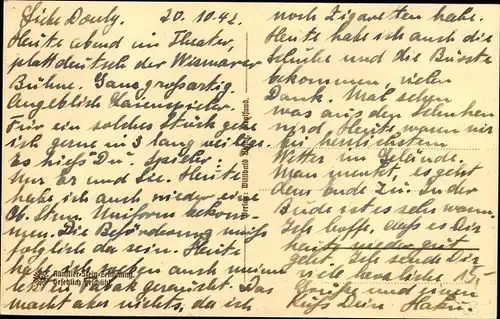 Liebe Douly. 20.10.42.
Heute abend im Theater,
plattdeutsch der Wismarer
Bühne. Ganz großartig.
Angeblich Laienspieler.
Für ein solches Stück gebe
ich gerne in 3 langweilige.
Es hieß "Du". Spieler:
Nur Er und Sie. Heute
habe ich auch wieder eine
Uniform bekom-
men. Die Beförderung muß
folglich da sein. Heute
auch meinen
letzten Tabak geraucht. Das
macht aber nichts, da ich
noch Zigaretten habe.
Heute habe ich auch die
Schuhe und die Bürste
bekommen, vielen
Dank. Mal sehen
was aus den Schuhen
wird. Heute waren wir
bei herrlichstem
Wetter im Gelände.
Man merkt, es geht
dem Ende zu. In der
Bude ist es sehr warm
Ich hoffe, daß es Dir
wieder gut
geht. Ich sende Dir
viele herzliche
Grüße und einen
Kuß Dein
Gesetzlich geschützt